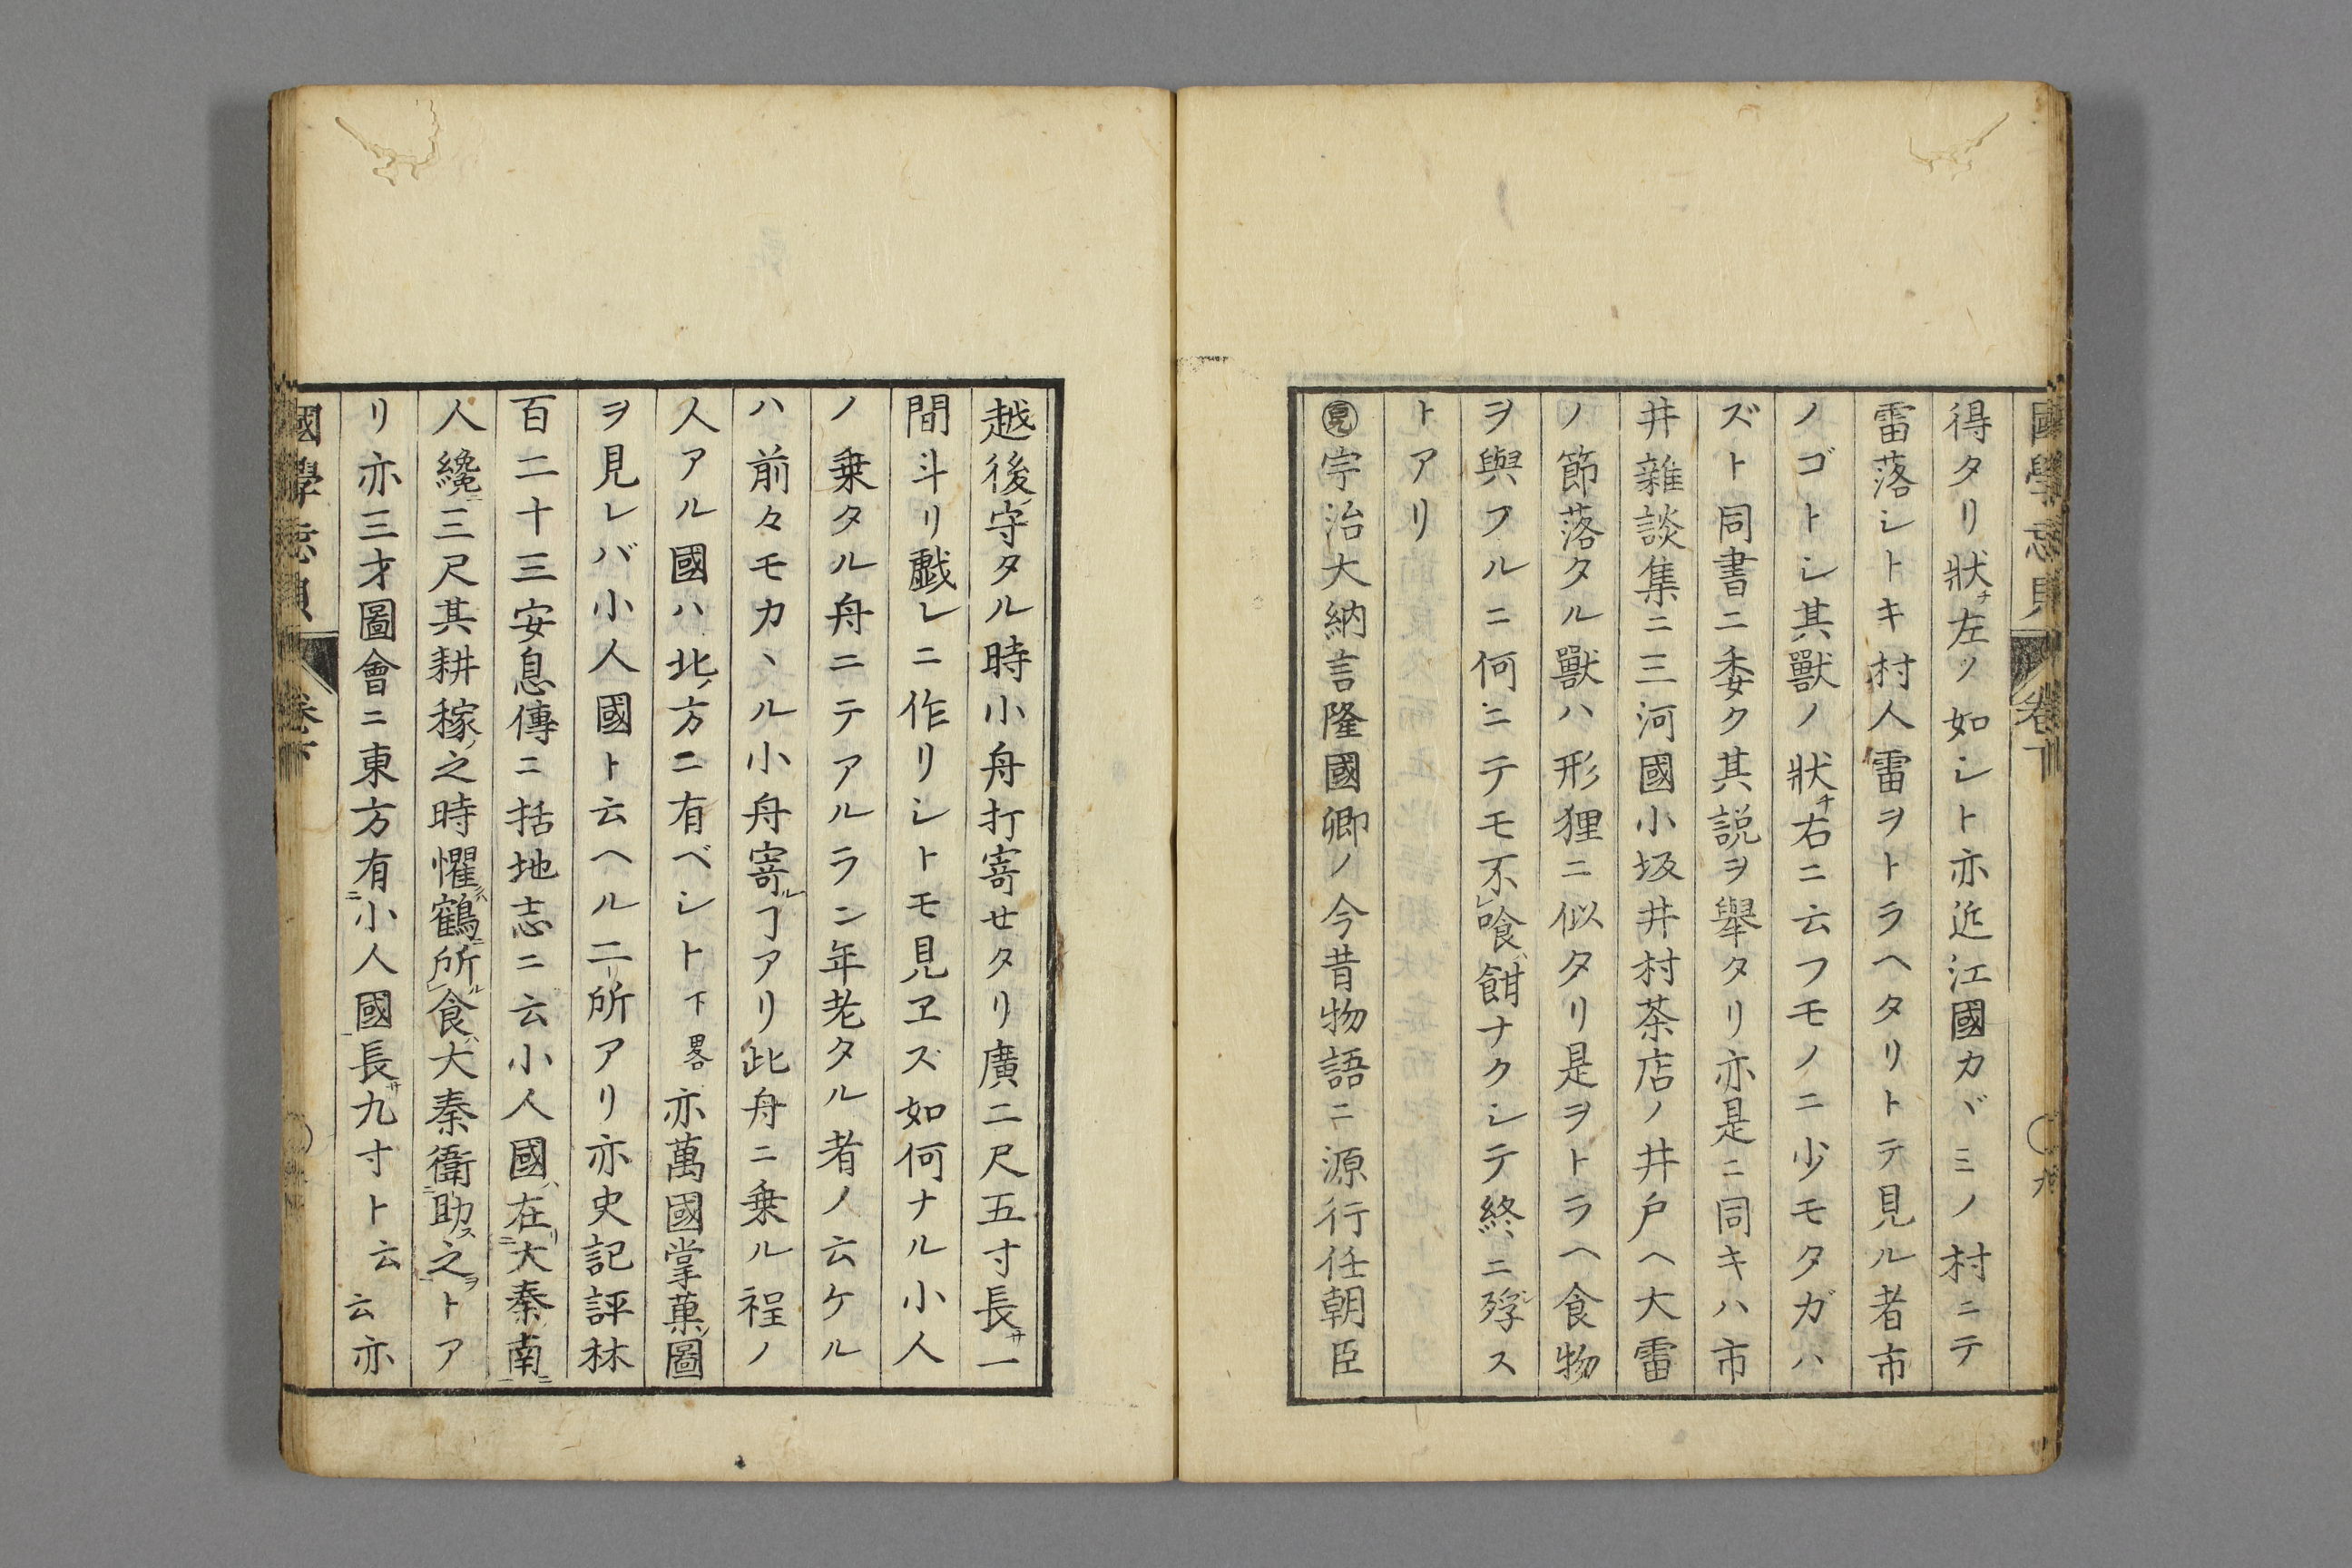 國學忘貝 卷下
得タリ狀チ左ノ如シト亦近江國カヾミノ村ニテ
雷落シトキ村人雷ヲトラヘタリトテ見ル者市
ノゴトシ其獸ノ狀チ右ニ云フモノニ少モタガハ
ズト同書ニ委ク其説ヲ舉タリ亦是ニ同キハ市
井雜談集ニ三河國小坂井村茶店ノ井戸ヘ大雷
ノ節落タル獸ハ形狸ニ似タリ是ヲトラヘ食物
ヲ與フルニ何ニテモ不レ喰ハ餌ナクシテ終ニ殍ス
トアリ
㊞宇治大納言隆國卿ノ今昔物語ニ源行任朝臣
越後守タル時小舟打寄セタリ廣二尺五寸長サ一
間斗リ戯レニ作リシトモ見ヱズ如何ナル小人
ノ乗タル舟ニテアルラン年老タル者ノ云ケル
ハ前々モカヽル小舟寄ルヿアリ此舟ニ乗ル程ノ
人アル國ハ北ノ方ニ有ベシト下畧亦萬國掌菓ノ圖
ヲ見レバ小人國ト云ヘル二所アリ亦史記評林
百二十三安息傳ニ括地志ニ云小人國ハ在リ二大秦ノ南ニ一
人纔ニ三尺其耕稼ノ之時懼ル鶴ニ所ルレ食ハ大秦衞助ス之ヲトア
リ亦三才圖會ニ東方有二小人國一長サ九寸ト云云亦
國學忘貝 卷下